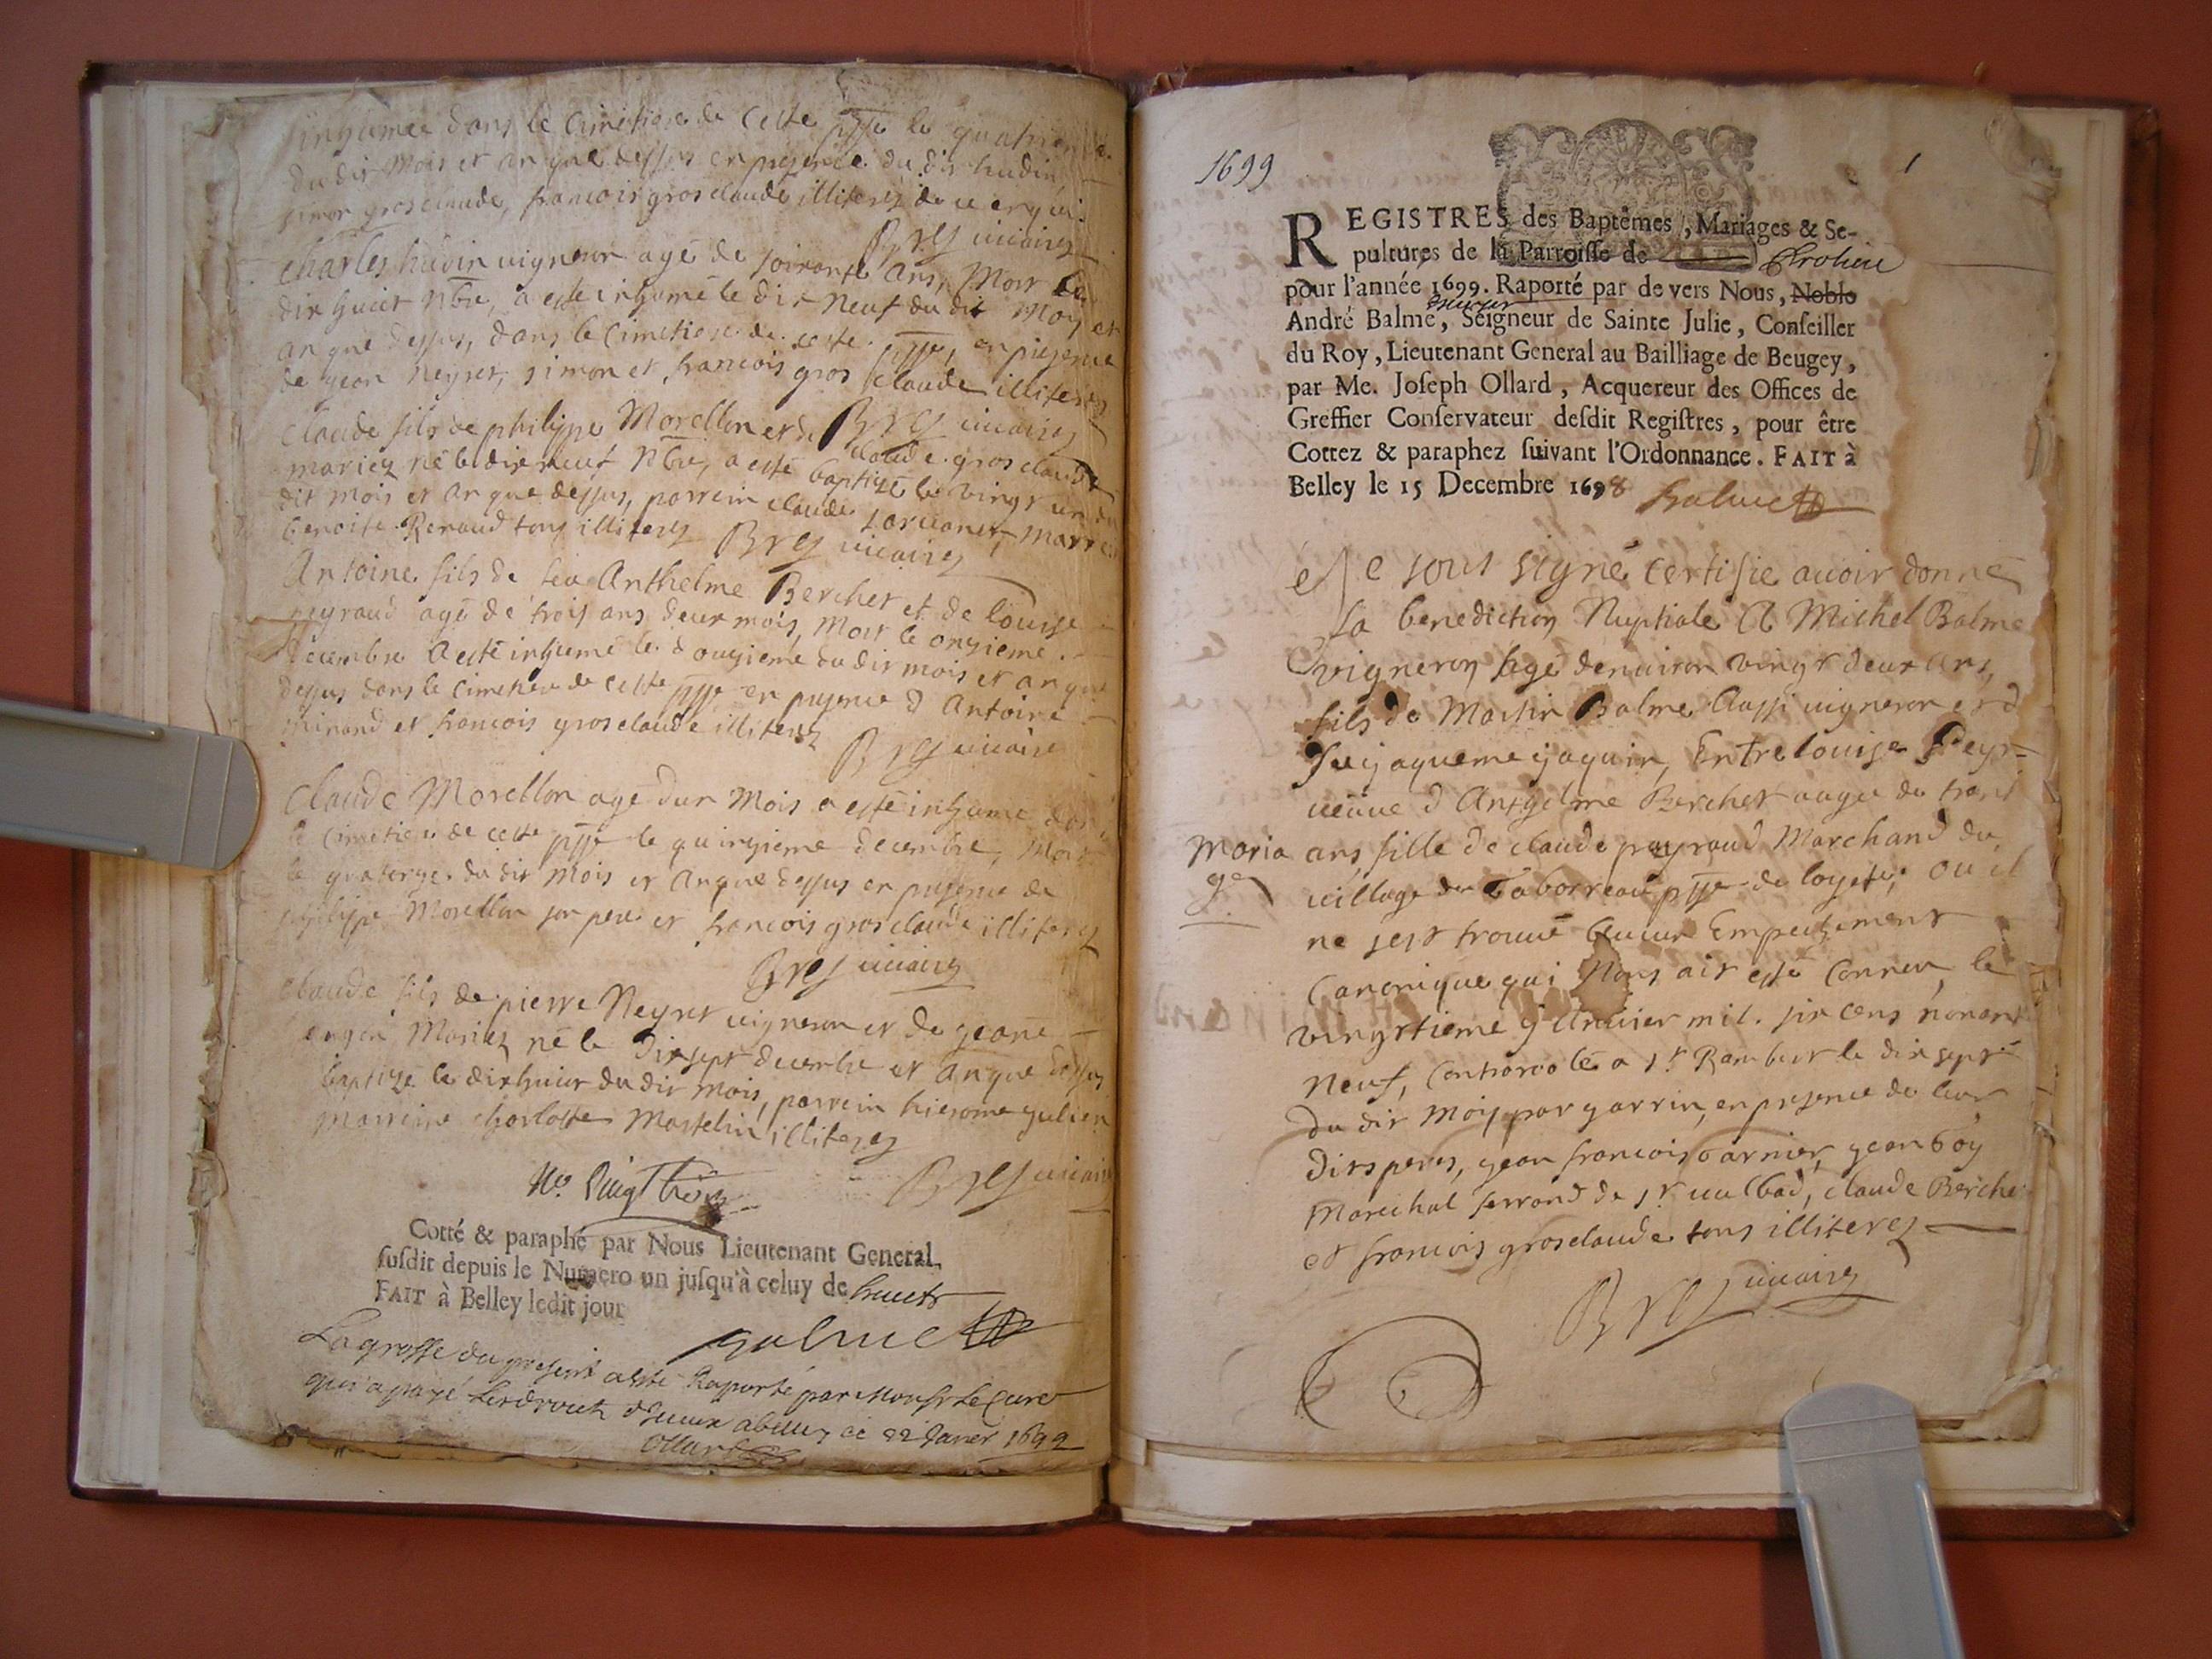 inhumée dans le Cimetiere de Cette psse le quatrieme
du dit Mois et an que dessus en presence du dit hudin,
simon grosclaude, francois grosclaude illiterez de ce enquis
Bres vicaire
Charles hudin vigneron agé de soixante ans, Mort le
dix huict Nbre, a esté inhumé le dix Neuf du dit Moy et
an que dessus, dans le Cimetiere de cette psse, en presence
de jean Neyret, simon et francois gros claude illiterez
Bres vicaire
Claude fils de philippe Morellon et de claude gros claude
mariez né le dix neuf Nbre, a esté baptizé le vingt un du
dit mois et an que dessus, parrein claude, marreine
benoite Renaud tous illiterez Bres vicaire
Antoine fils de feu Anthelme Berchet et de louise
peyraud agé de trois ans deux mois, Mort le onzieme
decembre a esté inhumé le douzieme du dit mois et an que
dessus dans le Cimetiere de cette psse en presence d Antoine
et francois grosclaude illiterez
Bres vicaire
Claude Morellon agé dun Mois a esté inhumé dans
le Cimetiere de cette psse le quinzieme decembre, Mort
le quatorze du dit Mois et an que dessus en presence de
philippe Morellon son pere et francois gros claude illiterez
Bres vicaire
Claude fils de pierre Neyret vigneron et de jeane
Mariez né le dix sept decembre et an que dessus
baptizé le dix huict du dit mois, parrein hierome
marreine charlotte Martelin illiterez
Bres vicaire
Cotté & paraphé par Nous Lieutenant General
susdit depuis le Numero un jusqu'à celuy de huict
FAIT à Belley ledit jour
Balme
La grosse du present a esté Raporté par Monsr le Curé
qui a payé les droicts a belley ce 22 Janer 1699
Ollard
1699
1
REGISTRES des Baptêmes, Mariages & Se-
pultures de la Parroisse de
pour l'année 1699. Raporté par de vers Nous, Noble
André Balme, Seigneur de Sainte Julie, Conseiller
du Roy, Lieutenant General au Bailliage de Beugey,
par Me. Joseph Ollard, Acquereur des Offices de
Greffier Conservateur desdit Registres, pour être
Cottez & paraphez suivant l'Ordonnance. FAIT à
Belley le 15 Decembre 1698 Balme
Je sous signé certifie avoir donné
la benediction Nuptiale A Michel Balme
vigneron Agé denviron vingt deux ans,
fils de Martin Balme Aussi vigneron et d
feu jaqueme jaquin, Entre louise Peyr-
veuve d Anthelme Berchet aagee de trent
Maria
ge
ans, fille de claude peyraud Marchand du
village du Taborreau psse de loyete, ou il
ne sest trouvé Aucun Empechement
Canonique qui Nous ait esté Conneu, le
vingttieme janvier mil six cens nonant
Neuf, Controrolé a st Rambert le dix sept
du dit Mois par garrin, en presence de leur
dits peres, jean francois Garnier, jean Goy
Marechal ferrand de st vulbad, claude Berche
et francois grosclaude tous illiterez
Bres vicaire